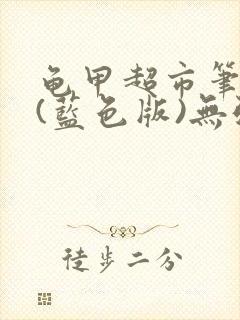 龟甲超市筆
(藍色版)無
徒步二分